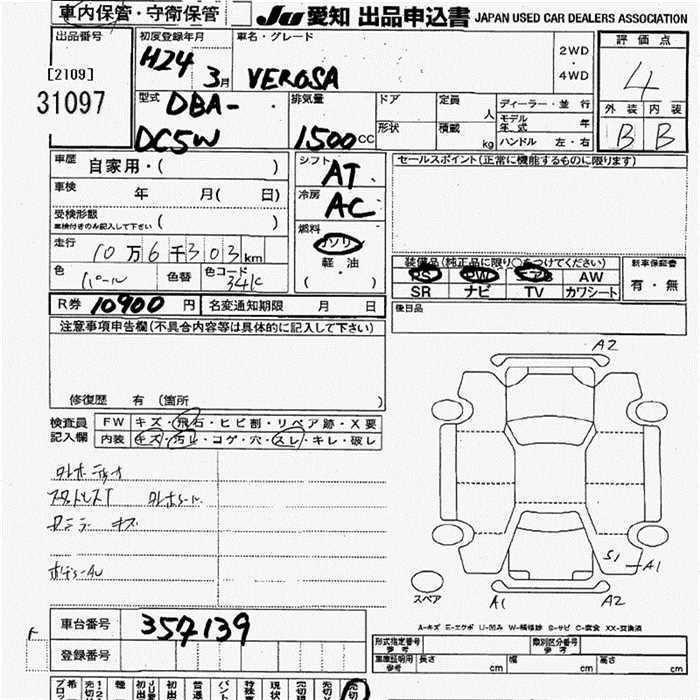 車内保管・守衛保管
JU 愛知 出品申込書 JAPAN USED CAR DEALERS ASSOCIATION
出品番号
[2109]
31097
初度登録年月
H24 3月
車名・グレード
VEROSA
2WD
・
4WD
評価点
4
外装 内装
B B
型式
DBA-
DC5W
排気量
1500 cc
ドア
形状
定員 人
積載 kg
ディーラー・並行
モデル年式 年
ハンドル 左・右
車歴 自家用・( )
車検 年 月( 日)
受検形態
車検付きのみ記入して下さい ( )
走行 10万6千303km
色 パール 色替 色コード 341C
シフト AT
冷房 AC
燃料
ガソリン
軽・油
( )
セールスポイント(正常に機能するものに限ります)
装備品(純正品に限り○をつけてください)
PS PW エアB AW
SR ナビ TV カワシート
新車保証書
有・無
R券 10900 円 名変通知期限 月 日
後日品
注意事項申告欄(不具合内容等は具体的に記入して下さい)
修復歴 有 (箇所 )
検査員
記入欄
FW キズ・飛石・ヒビ割・リペア跡・X要
内装 キズ・汚レ・コゲ・穴・スレ・キレ・破レ
A2
S1
A1
スペア
A1 A2
A-キズ E-エクボ U-凹み W-補修跡 S-サビ C-腐食 XX-交換済
車台番号 357139
登録番号
形式指定番号 参考
類別区分番号 参考
車庫証明用 参考 長さ cm 幅 cm 高さ cm